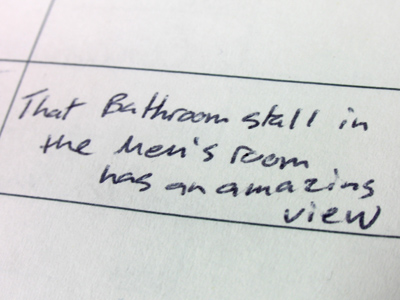 That Bathroom stall in
the Men's room
has an amazing
view